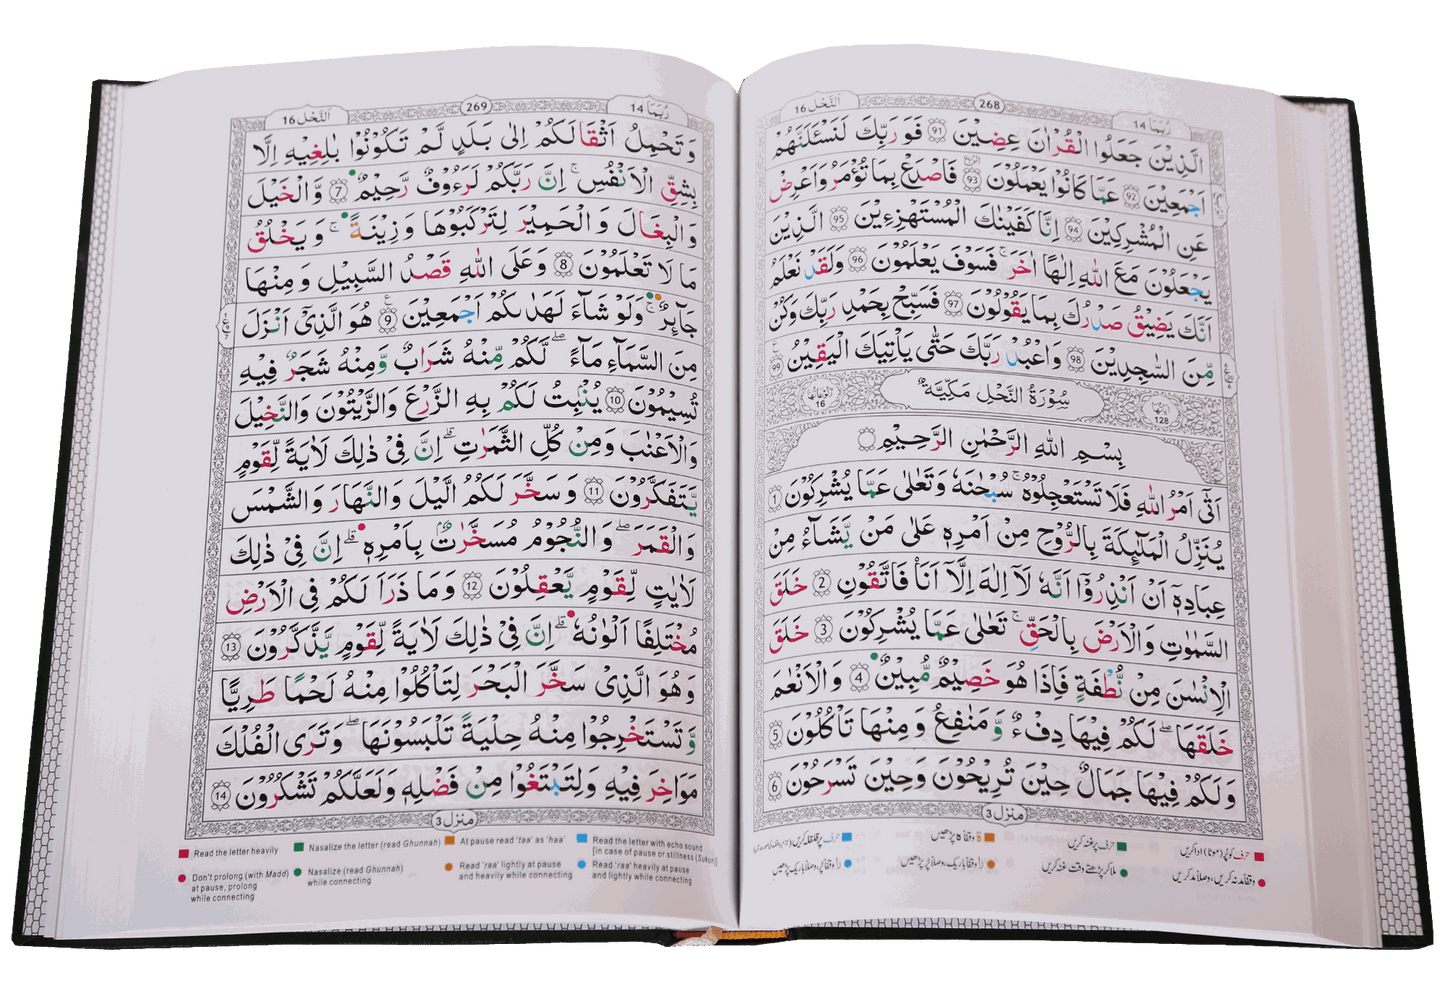 اَلنَّحْل 16
268
رُبَمَا 14
الَّذِيْنَ جَعَلُوا الْقُرْاٰنَ عِضِيْنَ 91 فَوَرَبِّكَ لَنَسْـَٔلَنَّهُمْ
اَجْمَعِيْنَ 92 عَمَّا كَانُوْا يَعْمَلُوْنَ 93 فَاصْدَعْ بِمَا تُؤْمَرُ وَاَعْرِضْ
عَنِ الْمُشْرِكِيْنَ 94 اِنَّا كَفَيْنٰكَ الْمُسْتَهْزِءِيْنَ 95 الَّذِيْنَ
يَجْعَلُوْنَ مَعَ اللّٰهِ اِلٰهًا اٰخَرَ ۚ فَسَوْفَ يَعْلَمُوْنَ 96 وَلَقَدْ نَعْلَمُ
اَنَّكَ يَضِيْقُ صَدْرُكَ بِمَا يَقُوْلُوْنَ 97 فَسَبِّحْ بِحَمْدِ رَبِّكَ وَكُنْ
مِّنَ السّٰجِدِيْنَ 98 وَاعْبُدْ رَبَّكَ حَتّٰى يَاْتِيَكَ الْيَقِيْنُ 99
اٰيَاتُهَا 128
سُوْرَةُ النَّحْلِ مَكِّيَّةٌ
رُكُوْعَاتُهَا 16
بِسْمِ اللّٰهِ الرَّحْمٰنِ الرَّحِيْمِ
اَتٰۤى اَمْرُ اللّٰهِ فَلَا تَسْتَعْجِلُوْهُ ؕ سُبْحٰنَهٗ وَتَعٰلٰى عَمَّا يُشْرِكُوْنَ 1
يُنَزِّلُ الْمَلٰٓئِكَةَ بِالرُّوْحِ مِنْ اَمْرِهٖ عَلٰى مَنْ يَّشَآءُ مِنْ
عِبَادِهٖۤ اَنْ اَنْذِرُوْۤا اَنَّهٗ لَاۤ اِلٰهَ اِلَّاۤ اَنَا فَاتَّقُوْنِ 2 خَلَقَ
السَّمٰوٰتِ وَالْاَرْضَ بِالْحَقِّ ؕ تَعٰلٰى عَمَّا يُشْرِكُوْنَ 3 خَلَقَ
الْاِنْسَانَ مِنْ نُّطْفَةٍ فَاِذَا هُوَ خَصِيْمٌ مُّبِيْنٌ 4 وَالْاَنْعَامَ
خَلَقَهَا ۚ لَكُمْ فِيْهَا دِفْءٌ وَّمَنَافِعُ وَمِنْهَا تَاْكُلُوْنَ 5
وَلَكُمْ فِيْهَا جَمَالٌ حِيْنَ تُرِيْحُوْنَ وَحِيْنَ تَسْرَحُوْنَ 6
منزل 3
اَلنَّحْل 16
269
رُبَمَا 14
وَتَحْمِلُ اَثْقَالَكُمْ اِلٰى بَلَدٍ لَّمْ تَكُوْنُوْا بٰلِغِيْهِ اِلَّا
بِشِقِّ الْاَنْفُسِ ؕ اِنَّ رَبَّكُمْ لَرَءُوْفٌ رَّحِيْمٌ 7 وَّالْخَيْلَ
وَالْبِغَالَ وَالْحَمِيْرَ لِتَرْكَبُوْهَا وَزِيْنَةً ؕ وَيَخْلُقُ
مَا لَا تَعْلَمُوْنَ 8 وَعَلَى اللّٰهِ قَصْدُ السَّبِيْلِ وَمِنْهَا
جَآئِرٌ ؕ وَلَوْ شَآءَ لَهَدٰىكُمْ اَجْمَعِيْنَ 9 هُوَ الَّذِيْۤ اَنْزَلَ
مِنَ السَّمَآءِ مَآءً لَّكُمْ مِّنْهُ شَرَابٌ وَّمِنْهُ شَجَرٌ فِيْهِ
تُسِيْمُوْنَ 10 يُنْۢبِتُ لَكُمْ بِهِ الزَّرْعَ وَالزَّيْتُوْنَ وَالنَّخِيْلَ
وَالْاَعْنَابَ وَمِنْ كُلِّ الثَّمَرٰتِ ؕ اِنَّ فِيْ ذٰلِكَ لَاٰيَةً لِّقَوْمٍ
يَّتَفَكَّرُوْنَ 11 وَسَخَّرَ لَكُمُ الَّيْلَ وَالنَّهَارَ وَالشَّمْسَ
وَالْقَمَرَ ؕ وَالنُّجُوْمُ مُسَخَّرٰتٌۢ بِاَمْرِهٖ ؕ اِنَّ فِيْ ذٰلِكَ
لَاٰيٰتٍ لِّقَوْمٍ يَّعْقِلُوْنَ 12 وَمَا ذَرَاَ لَكُمْ فِي الْاَرْضِ
مُخْتَلِفًا اَلْوَانُهٗ ؕ اِنَّ فِيْ ذٰلِكَ لَاٰيَةً لِّقَوْمٍ يَّذَّكَّرُوْنَ 13
وَهُوَ الَّذِيْ سَخَّرَ الْبَحْرَ لِتَاْكُلُوْا مِنْهُ لَحْمًا طَرِيًّا
وَّتَسْتَخْرِجُوْا مِنْهُ حِلْيَةً تَلْبَسُوْنَهَا ۚ وَتَرَى الْفُلْكَ
مَوَاخِرَ فِيْهِ وَلِتَبْتَغُوْا مِنْ فَضْلِهٖ وَلَعَلَّكُمْ تَشْكُرُوْنَ 14
منزل 3
Read the letter heavily
Nasalize the letter (read Ghunnah)
At pause read 'taa' as 'haa'
Read the letter with echo sound
[in case of pause or stillness (Sukun)]
Don't prolong (with Madd)
at pause, prolong
while connecting
Nasalize (read Ghunnah)
while connecting
Read 'raa' lightly at pause
and heavily while connecting
Read 'raa' heavily at pause
and lightly while connecting